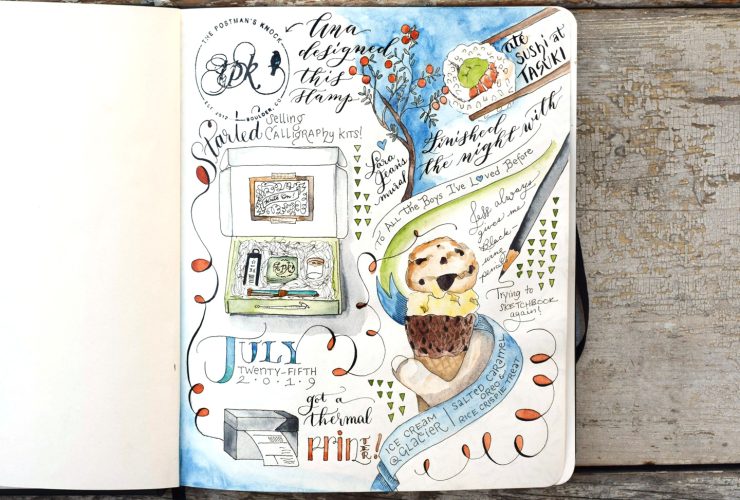 THE POSTMAN'S KNOCK
tpk
EST. 2012
BOULDER, CO
Tina
designed
this
stamp
Started
Selling
CALLIGRAPHY KITS!
Write On!
tpk
Lara
Jean's
mural
ate
SUSHI at
TASUKI
Finished
the night with
TO ALL THE BOYS I'VE LOVED BEFORE
Jeff always
gives me
Black-
wing
pencils
Trying to
SKETCHBOOK
again!
JULY
TWENTY-FIFTH
2.0.1.9
got a
thermal
PRINTER!
ICE CREAM
@ GLACIER
SALTED CARAMEL
OREO &
RICE CRISPIE TREAT